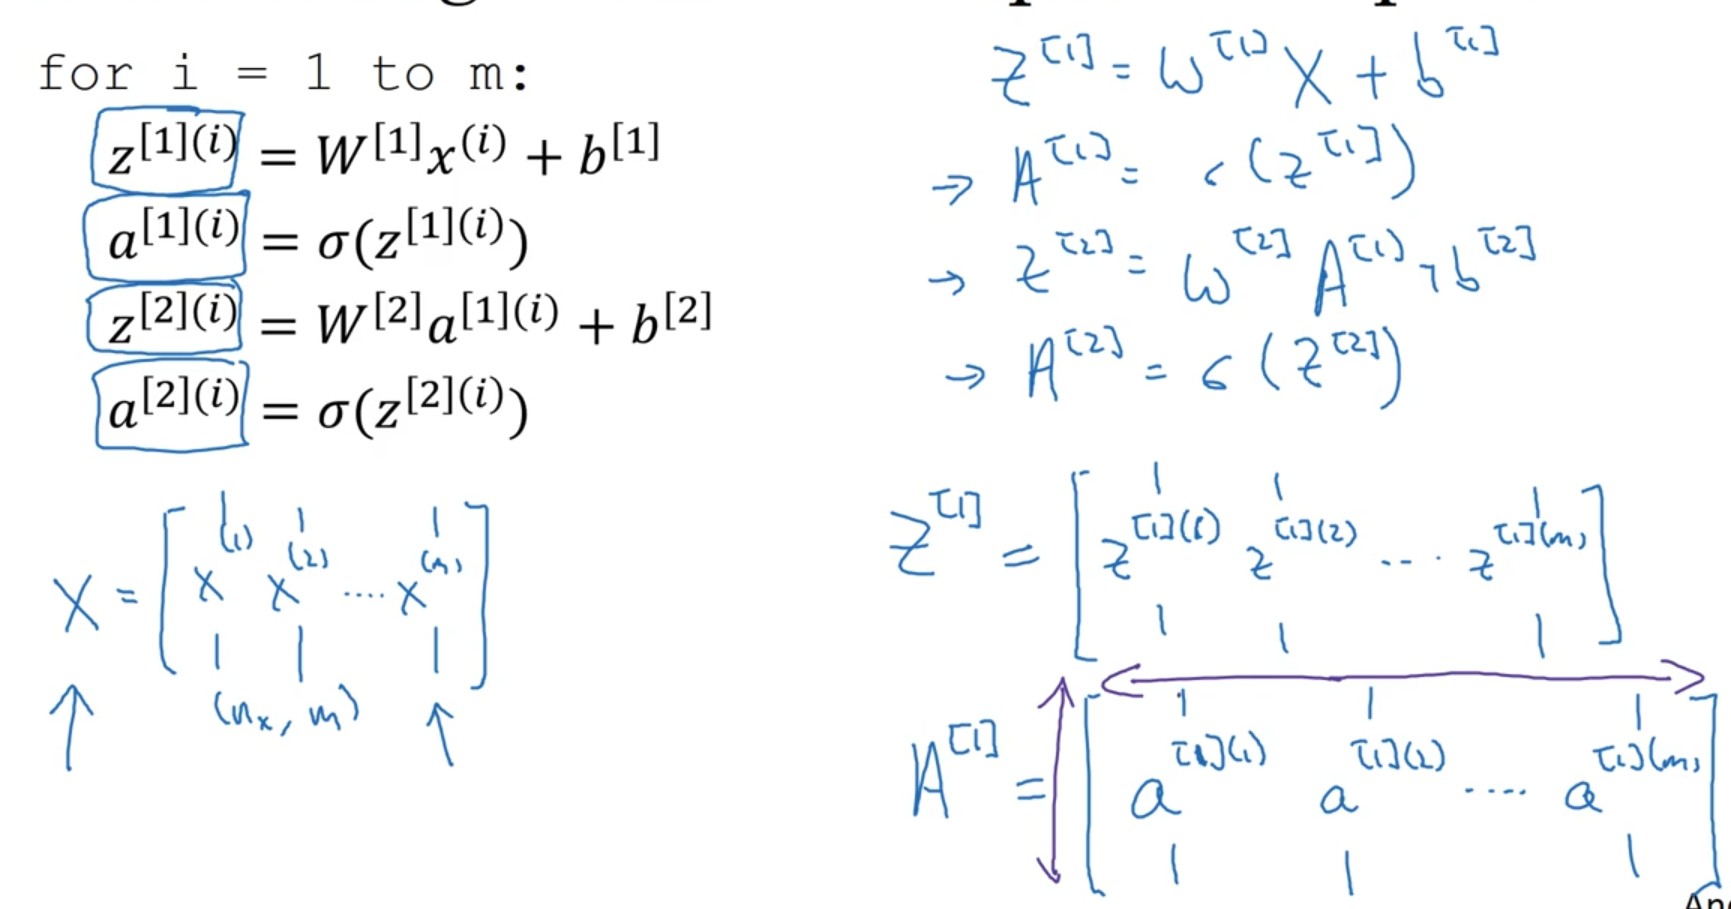 for i = 1 to m:
z^{[1](i)} = W^{[1]}x^{(i)} + b^{[1]}
a^{[1](i)} = σ(z^{[1](i)})
z^{[2](i)} = W^{[2]}a^{[1](i)} + b^{[2]}
a^{[2](i)} = σ(z^{[2](i)})
X = [x^{(1)} x^{(2)} .... x^{(m)}]
(n_x, m)
Z^{[1]} = W^{[1]} X + b^{[1]}
→ A^{[1]} = σ(Z^{[1]})
→ Z^{[2]} = W^{[2]} A^{[1]} + b^{[2]}
→ A^{[2]} = σ(Z^{[2]})
Z^{[1]} = [z^{[1](1)} z^{[1](2)} .... z^{[1](m)}]
A^{[1]} = [a^{[1](1)} a^{[1](2)} .... a^{[1](m)}]